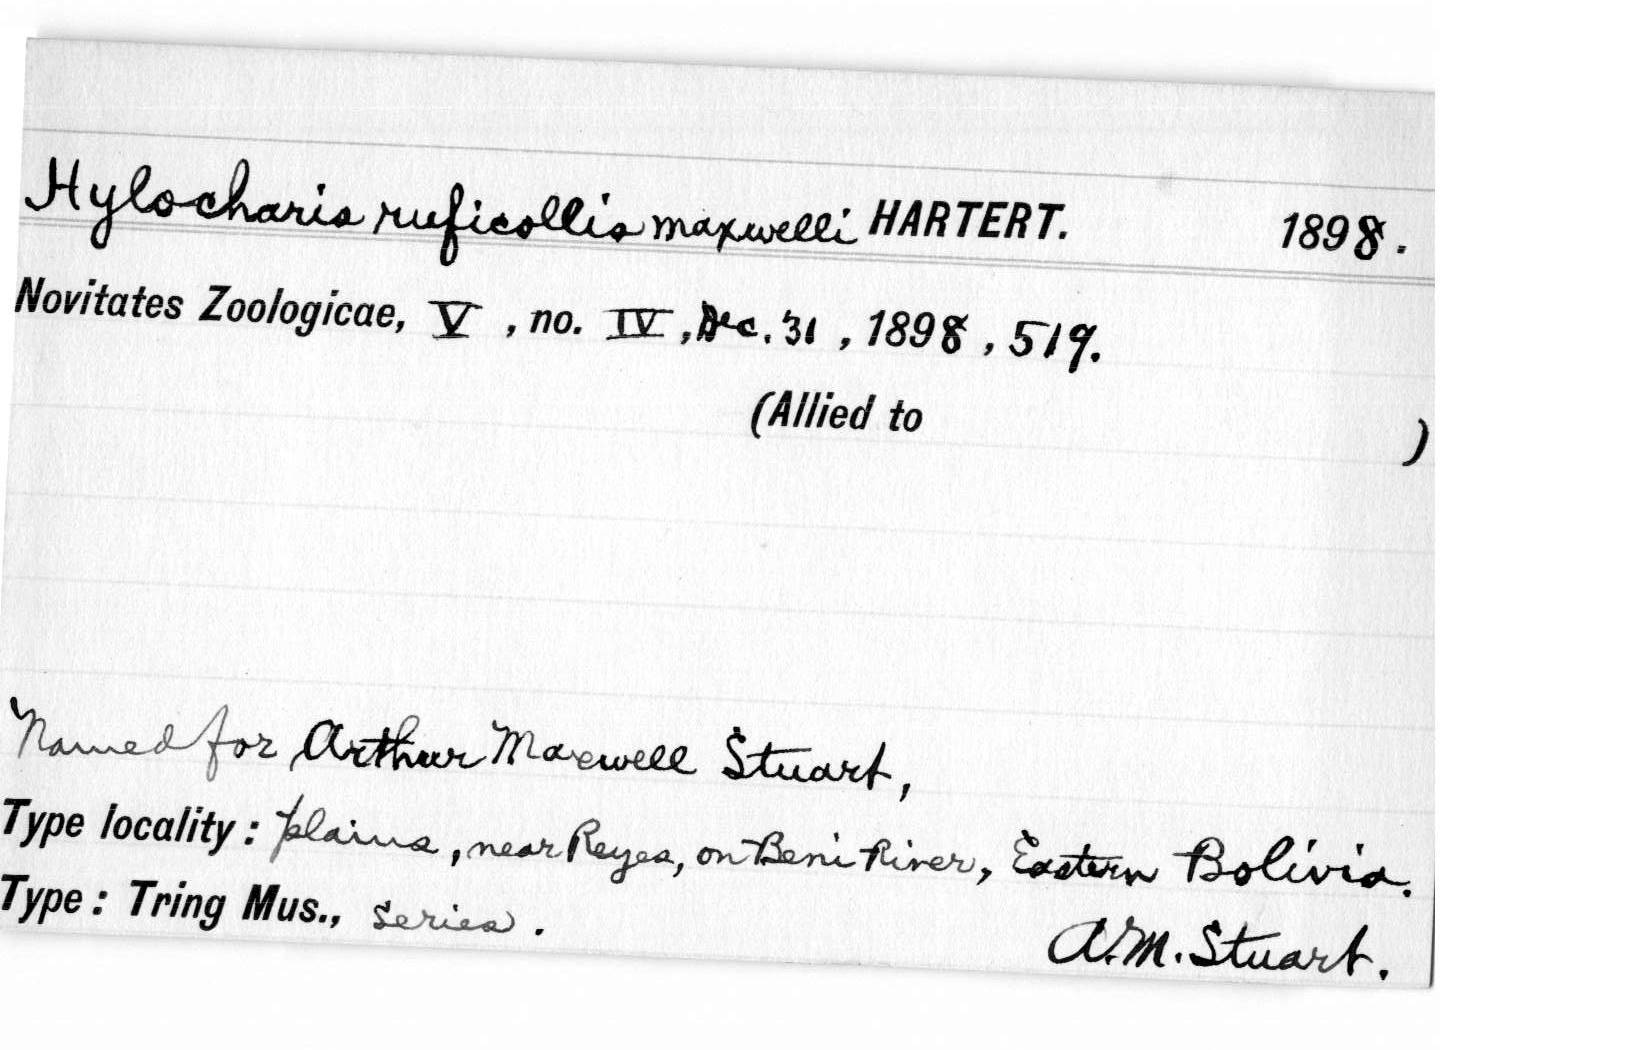 Hylocharis ruficollis maxwelli HARTERT. 1898.
Novitates Zoologicae, V, no. IV, Dec. 31, 1898, 519.
(Allied to )
Named for Arthur Maxwell Stuart,
Type locality: plains, near Reyes, on Beni River, Eastern Bolivia.
Type: Tring Mus., series. A.M. Stuart.